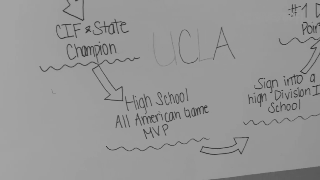 CIF & State
Champion
UCLA
#1 D
High School
All American Game
MVP
Sign into a
high Division I
School